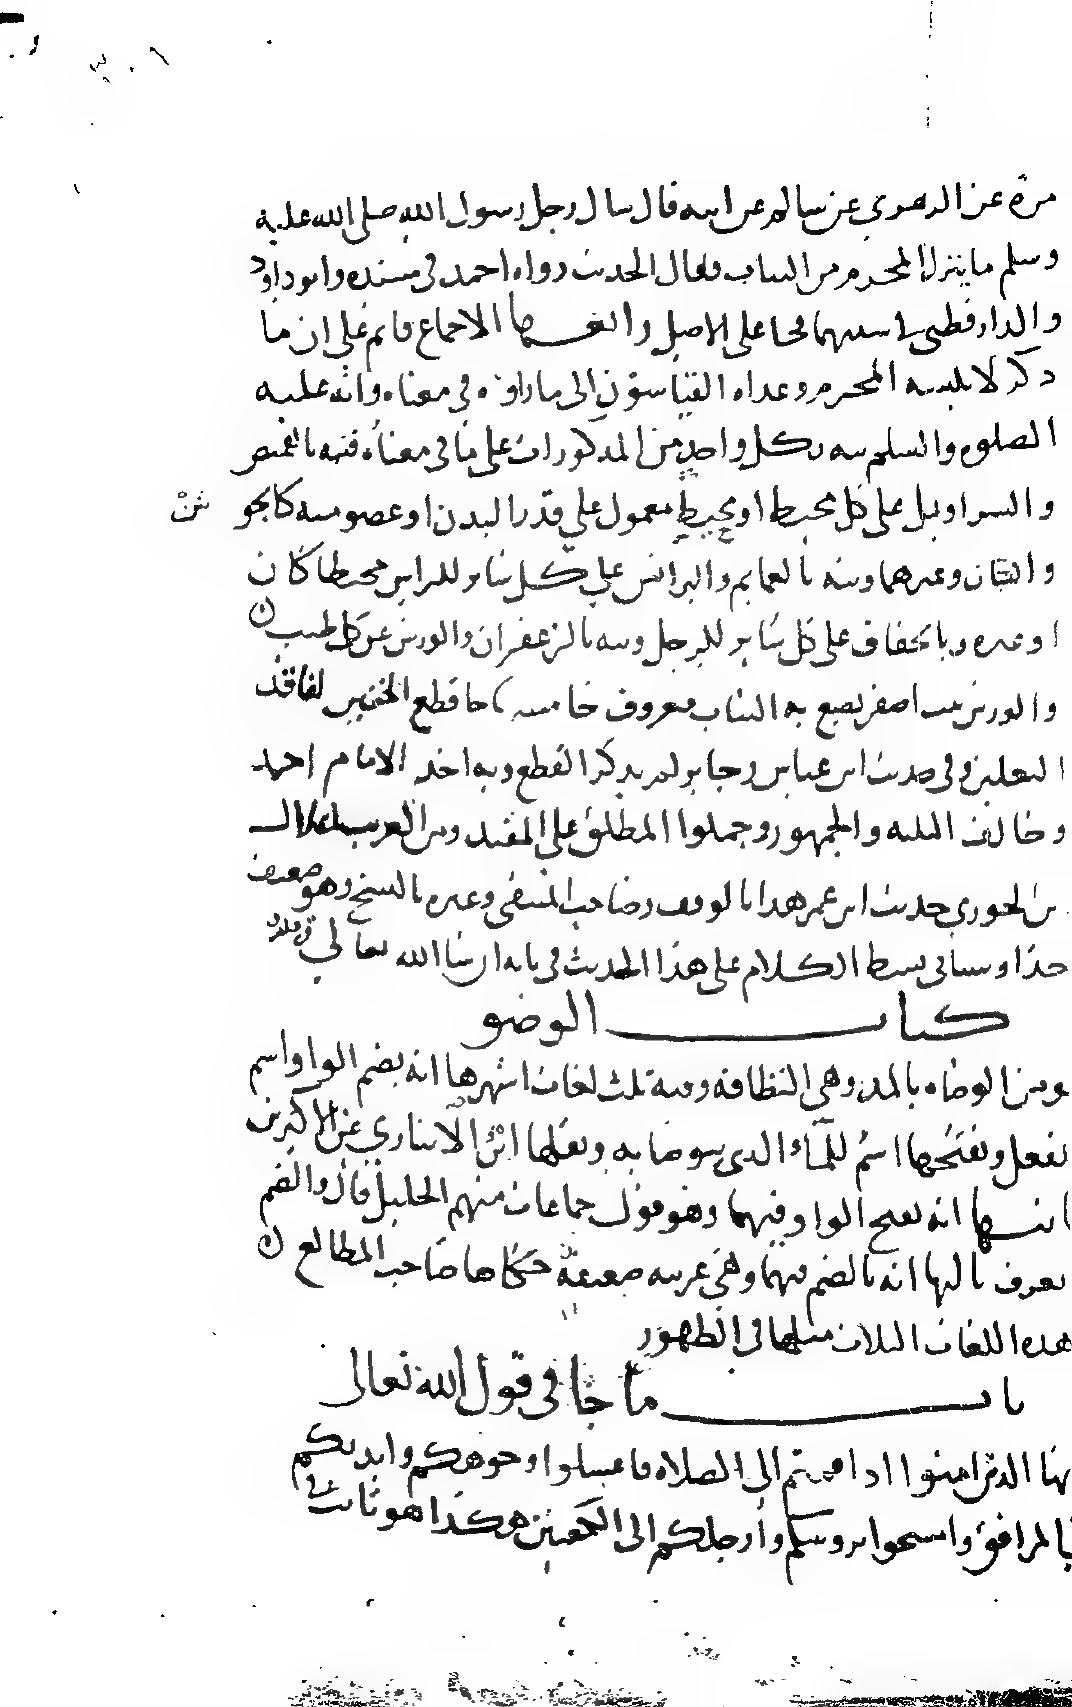 ٣٠٦
مرة عن الزهري عن سالم عن ابيه قال سال رجل رسول الله صلى الله عليه
وسلم ما يترك المحرم من الثياب فقال الحديث رواه احمد في مسنده وابو داود
والدارقطني في سننهما على الاصل الاجماع قائم على ان ما
ذكر لا يلبسه المحرم وعداه القياسون الى ما راوه في معناه وانه عليه
الصلوه والسلم نبه بكل واحد من المذكورات على ما في معناه فنبه بالقميص
والسراويل على كل محيط او مخيط معمول على قدر البدن او عضو منه كالجو شن
والتبان وغيرهما ونبه بالعمايم والبرانس على كل ساتر للراس مخيطا كان
او غيره وبالخفاف على كل ساتر للرجل ونبه بالزعفران والورس على كل طيب
والورس نبت اصفر يصبغ به الثياب معروف قطع الخفين لفاقد
النعلين وفي حديث ابن عباس وجابر لم يذكر القطع وبه اخذ الامام احمد
وخالف الثلثه والجمهور وحملوا المطلق على المقيد ومن الغريب اعلال
بن الجوزي حديث ابن عمر هذا بالوقف وصاحب المنتقى وغيره بالنسخ وهو ضعيف
جدا وسياتي بسط الكلام على هذا الحديث في بابه ان شا الله تعالى
كتاب الوضو
هو من الوضاه بالمد وهي النظافه وفيه ثلث لغات اشهرها انه بضم الواو اسم
للفعل وبفتحها اسم للماء الذي يتوضا به ونقلها ابن الانباري عن الاكثرين
ثانيها انه بفتح الواو فيهما وهو قول جماعات منهم الخليل قال والضم
يعرف ثالثها انه بالضم فيهما وهي غريبه ضعيفة حكاها صاحب المطالع
هذه اللغات الثلاث مثلها في الطهور
باب ما جا في قول الله تعالى
يها الذين امنوا اذا قمتم الى الصلاه فاغسلوا وجوهكم وايديكم
الى المرافق وامسحوا بروسكم وارجلكم الى الكعبين هكذا هو ثابت